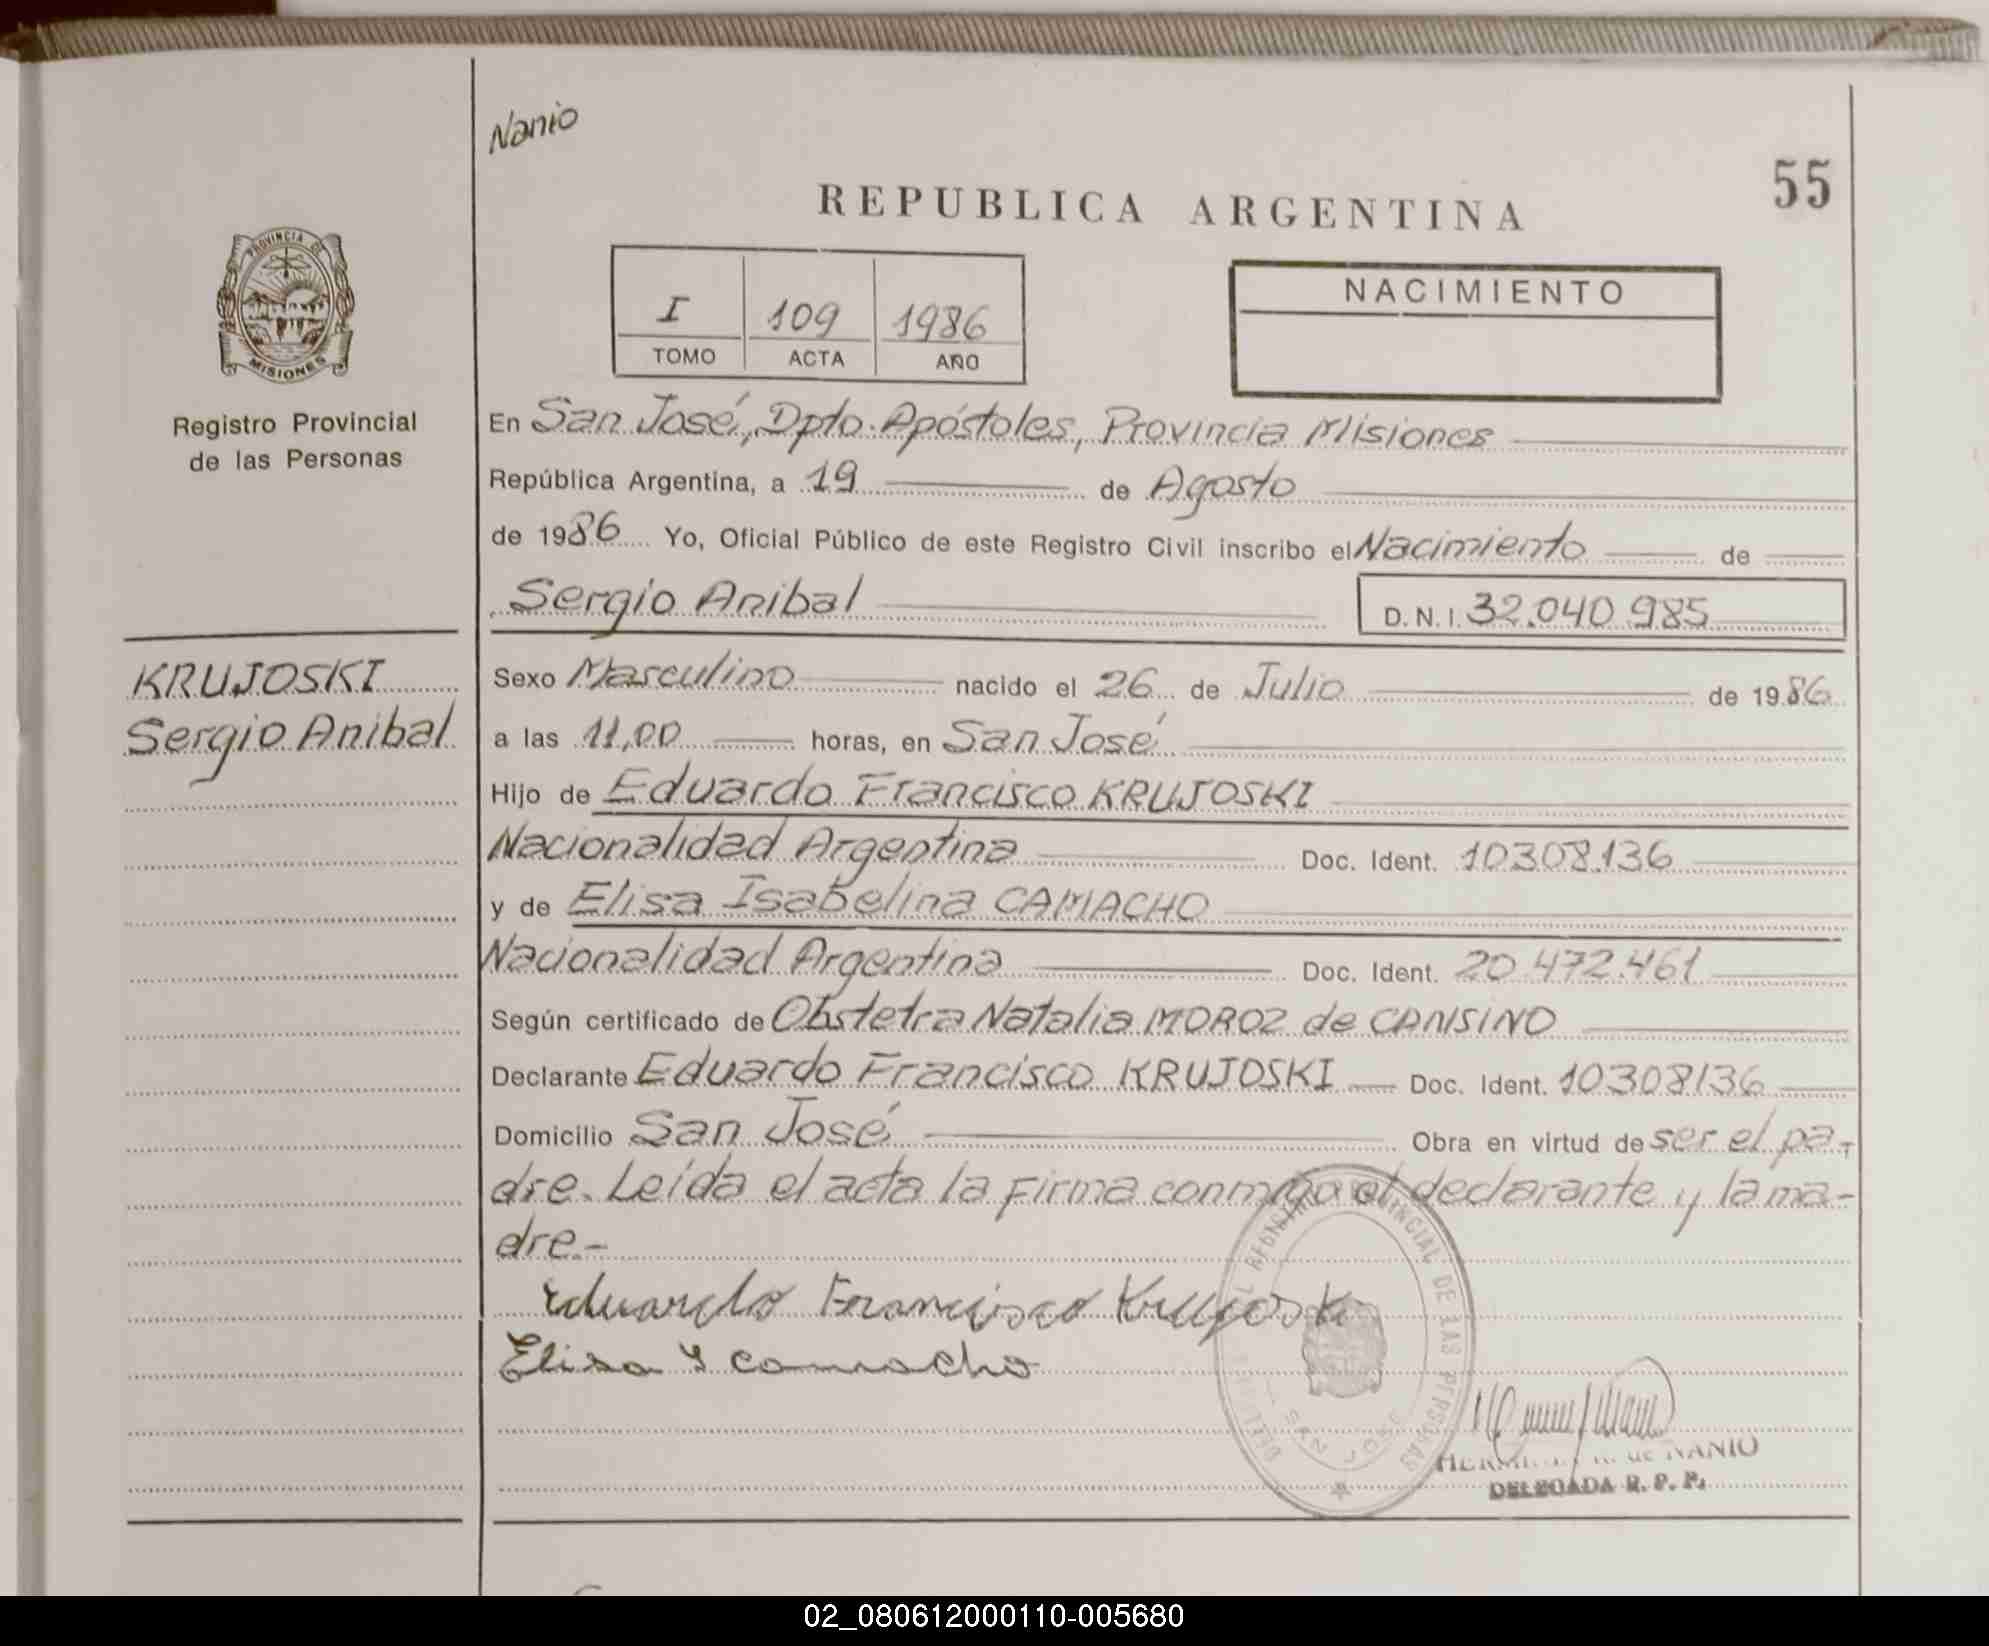 Nanio
55
REPUBLICA ARGENTINA
PROVINCIA DE
MISIONES
I 109 1986
TOMO ACTA AÑO
NACIMIENTO
Registro Provincial
de las Personas
En San José, Dpto. Apóstoles, Provincia Misiones
República Argentina, a 19 de Agosto
de 1986 Yo, Oficial Público de este Registro Civil inscribo el Nacimiento de
Sergio Anibal D.N.I. 32.040.985
KRUJOSKI
Sergio Anibal
Sexo Masculino nacido el 26 de Julio de 1986
a las 11,00 horas, en San José
Hijo de Eduardo Francisco KRUJOSKI
Nacionalidad Argentina Doc. Ident. 10308.136
y de Elisa Isabelina CAMACHO
Nacionalidad Argentina Doc. Ident. 20.472.461
Según certificado de Obstetra Natalia MOROZ de CANSINO
Declarante Eduardo Francisco KRUJOSKI Doc. Ident. 10308136
Domicilio San José Obra en virtud de ser el pa-
dre. Leída el acta la firma conmigo el declarante y la ma-
dre.-
Eduardo Francisco Krujoski
Elisa I camacho
PROVINCIAL DE LAS PERSONAS
SAN JOSE
de NANIO
DELEGADA R. P. P.
02_080612000110-005680